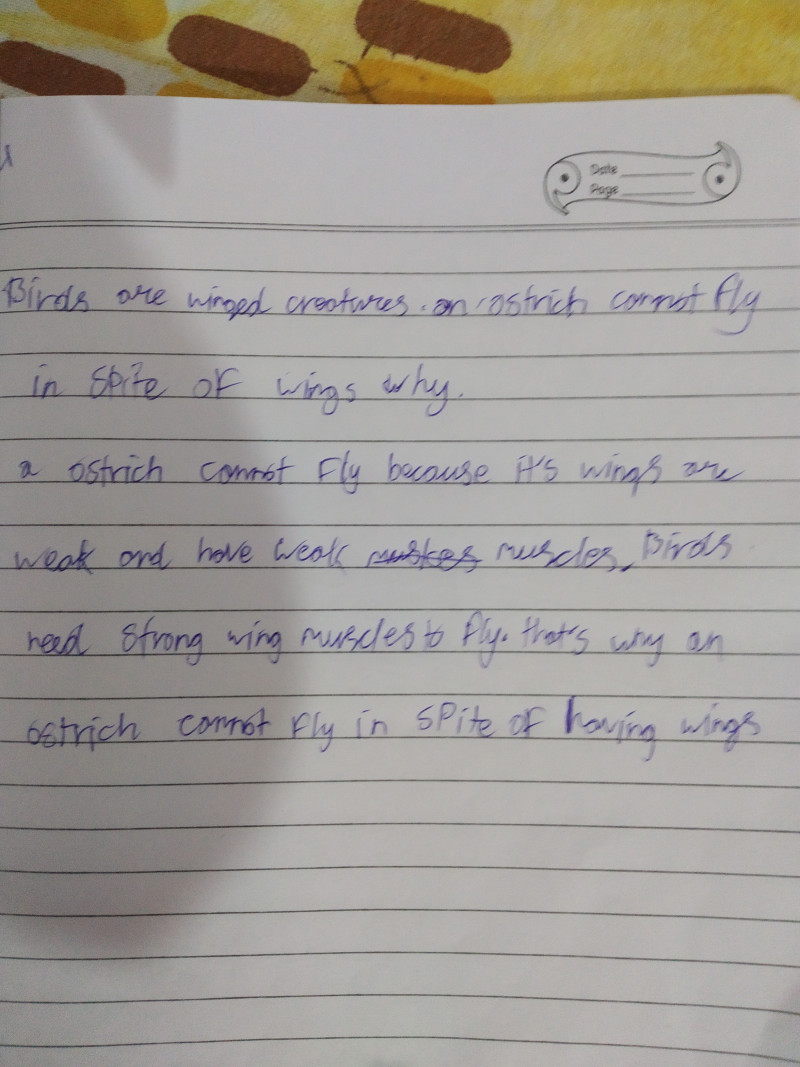 Date
Page
Birds are winged creatures. an ostrich cannot fly
in spite of wings why.
a ostrich cannot fly because it's wings are
weak and have weak muscles. Birds
need strong wing muscles to fly. that's why an
ostrich cannot fly in spite of having wings